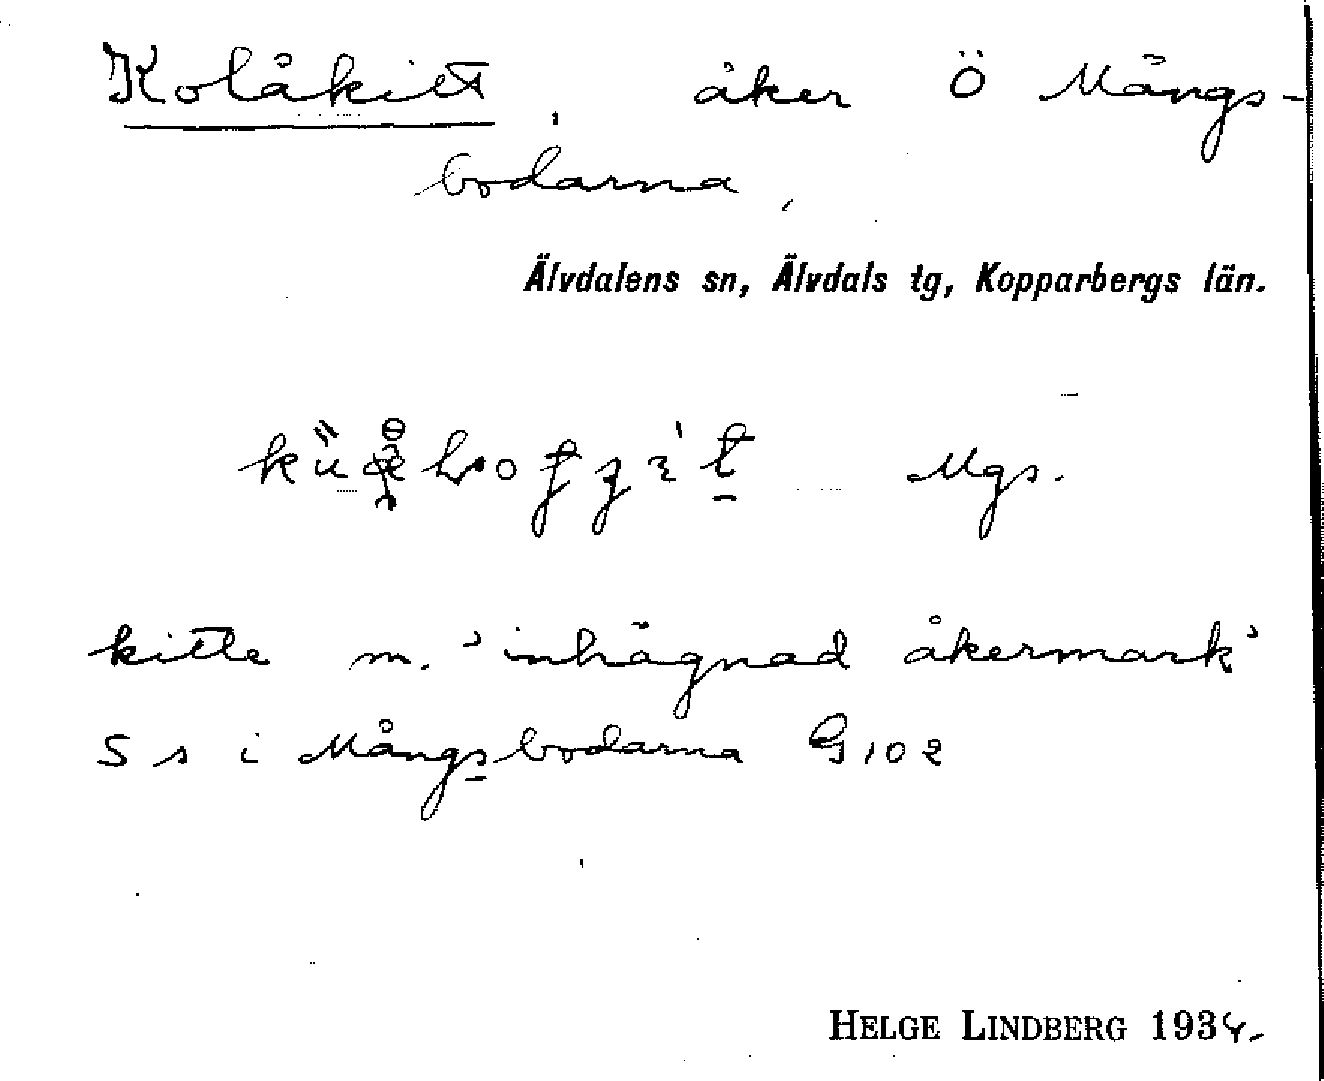 Kolåkitt, åker Ö Mångs-
bodarna,
Älvdalens sn, Älvdals tg, Kopparbergs län.
Mgs.
kitte m. 'inhägnad åkermark'
S s i Mångsbodarna G 102
HELGE LINDBERG 1934.